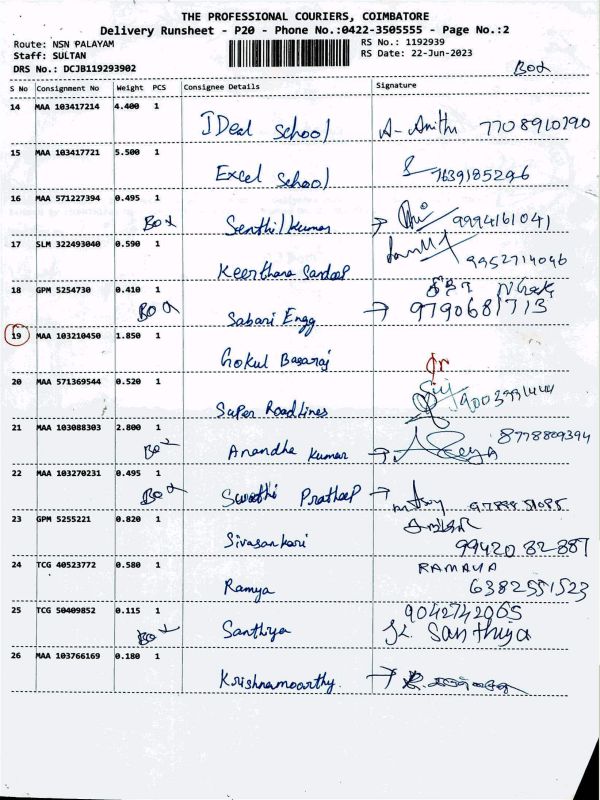 THE PROFESSIONAL COURIERS, COIMBATORE
Delivery Runsheet - P20 - Phone No.:0422-3505555 - Page No.:2
Route: NSN PALAYAM RS No.: 1192939
Staff: SULTAN RS Date: 22-Jun-2023
DRS No.: DCJB119293902
Box
S No Consignment No Weight PCS Consignee Details Signature
14 MAA 103417214 4.400 1
IDeal School A- Anithi 7708910790
15 MAA 103417721 5.500 1
Excel School 7639185296
16 MAA 571227394 0.495 1
Box Senthil kumar → 9994161041
17 SLM 322493040 0.590 1
Keerthana Sandeep 9952714046
18 GPM 5254730 0.410 1
Box Sabari Engg → 9790681713
19 MAA 103210450 1.850 1
Gokul Basaraj
20 MAA 571369544 0.520 1
Super Road Lines
21 MAA 103088303 2.800 1 8778809394
Box Anandha kumar →
22 MAA 103270231 0.495 1
Box Swathi Pratheep →
23 GPM 5255221 0.820 1
Sivasankari 99420 82887
24 TCG 40523772 0.580 1 RAMAYA
Ramya 6382551523
25 TCG 50409852 0.115 1 9042742065
Box Santhiya Santhiya
26 MAA 103766169 0.180 1
Krishnamoorthy. →